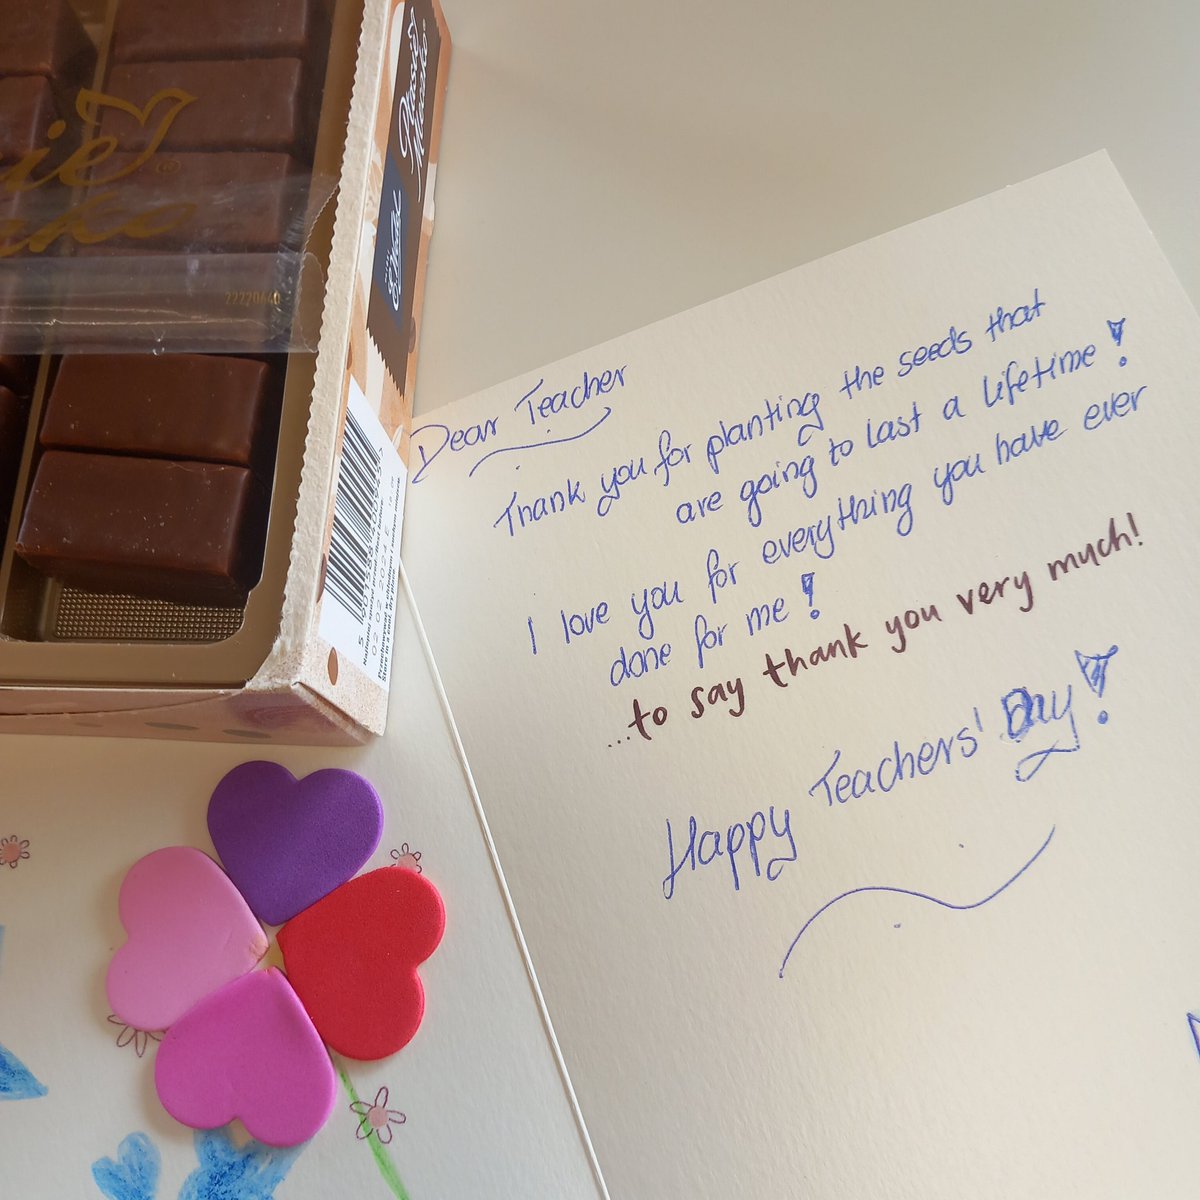 Ptasie
Mleczko®
E.Wedel
22220640
02 02 2024 E
Dear Teacher
Thank you for planting the seeds that
are going to last a lifetime!
I love you for everything you have ever
done for me!
...to say thank you very much!
Happy Teachers' Day!